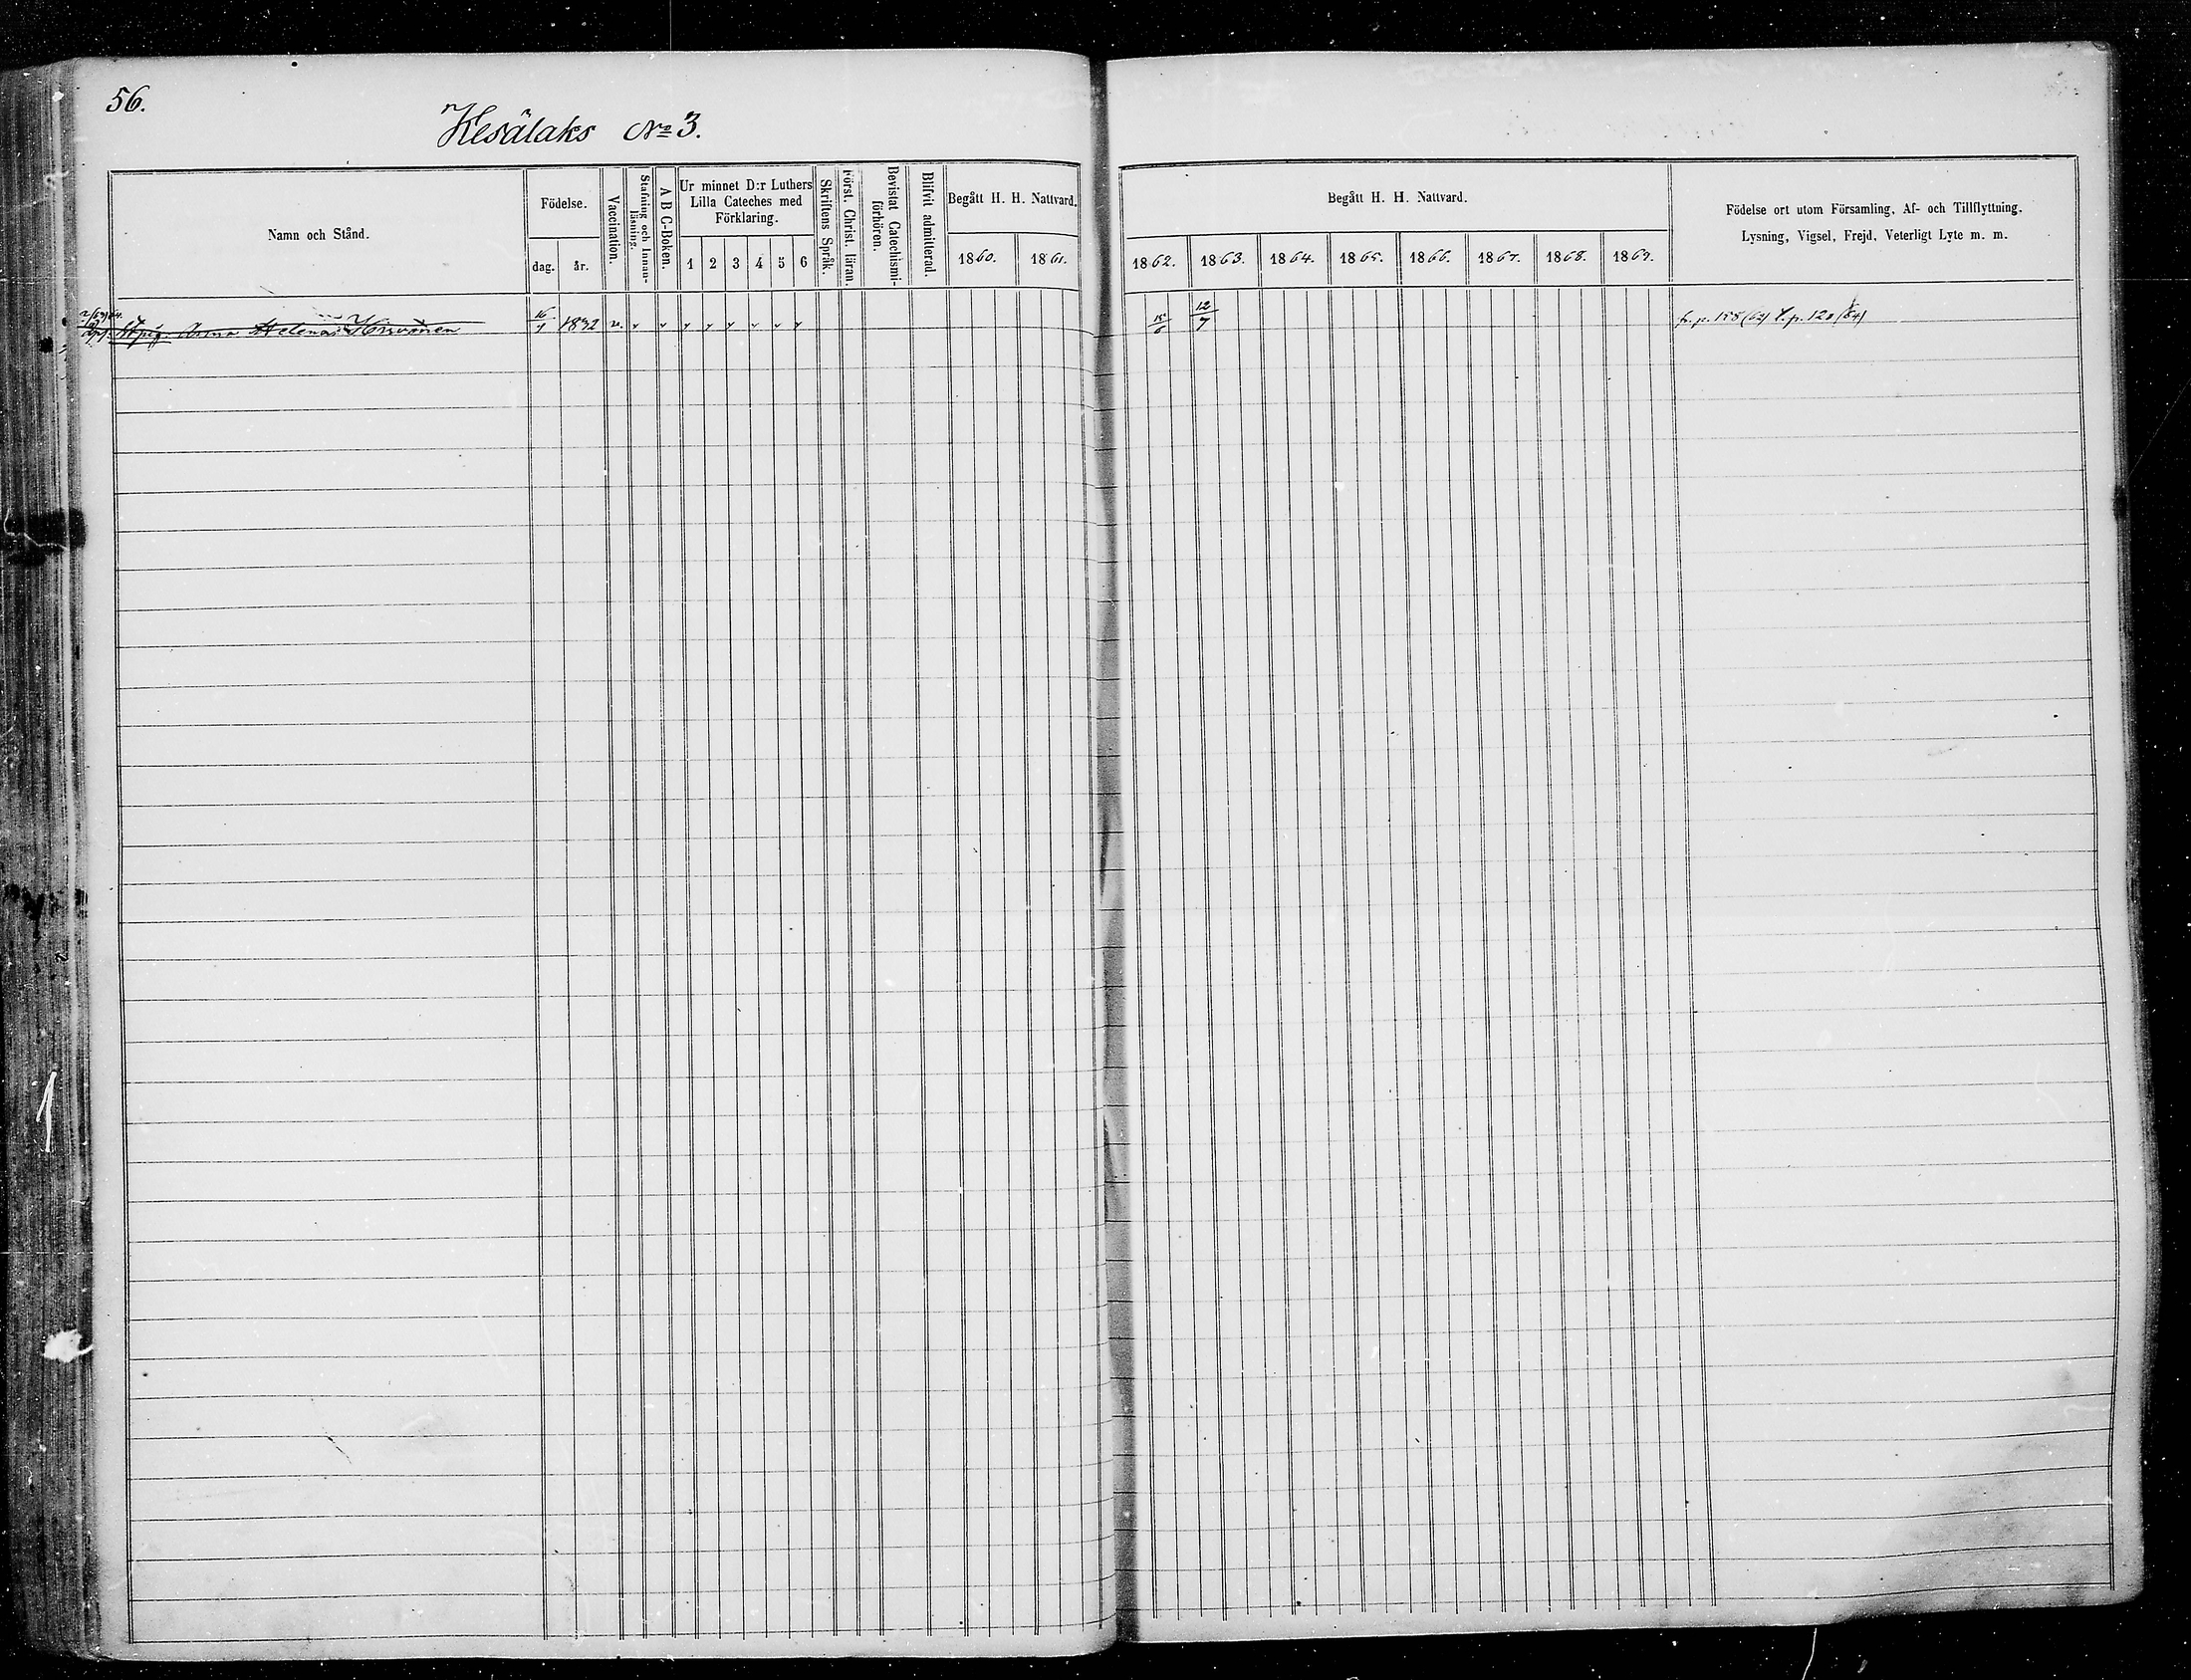 56.
Kesälaks No 3.
Namn och Stånd.
Födelse.
dag. år.
Vaccination.
Stafning och Innan-
läsning.
A B C-Boken.
Ur minnet D:r Luthers
Lilla Cateches med
Förklaring.
1 2 3 4 5 6
Skriftens Språk.
Först. Christ. läran.
Bevistat Catechismi-
förhören.
Blifvit admitterad.
Begått H. H. Nattvard.
1860. 1861.
Begått H. H. Nattvard.
1862. 1863. 1864. 1865. 1866. 1867. 1868. 1869.
Födelse ort utom Församling, Af- och Tillflyttning.
Lysning, Vigsel, Frejd, Veterligt Lyte m. m.
Anna Helena Hirvonen 16/4 1832 v. v v v v v v v v 15/6 12/7 fr. p. 158 (62) t. p. 120 (64)